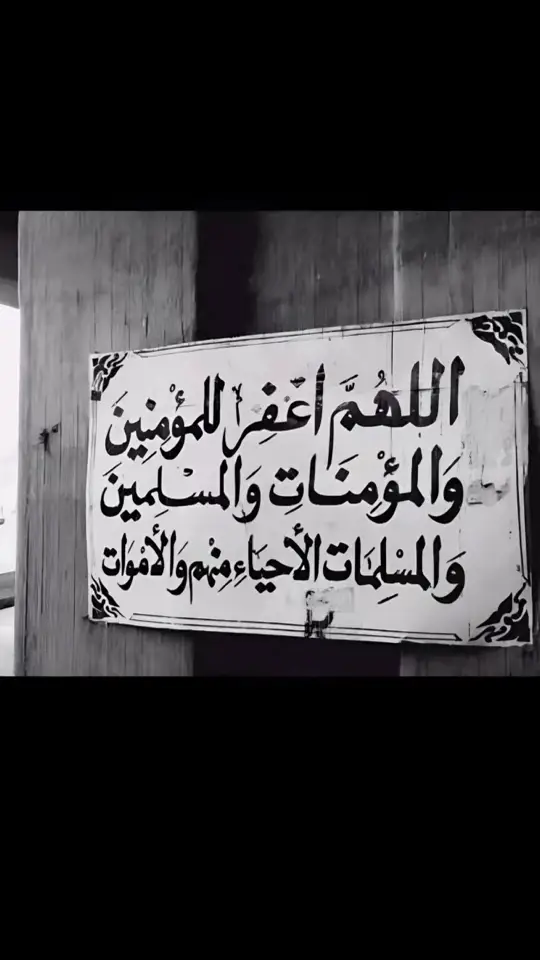 اللهُمَّ أغفِر للمؤْمِنِينَ
وَالمؤْمِنَاتِ وَالمسْلِمينَ
وَالمسْلِمَات الأحيَاءِ مِنْهُم وَالأمْوَات